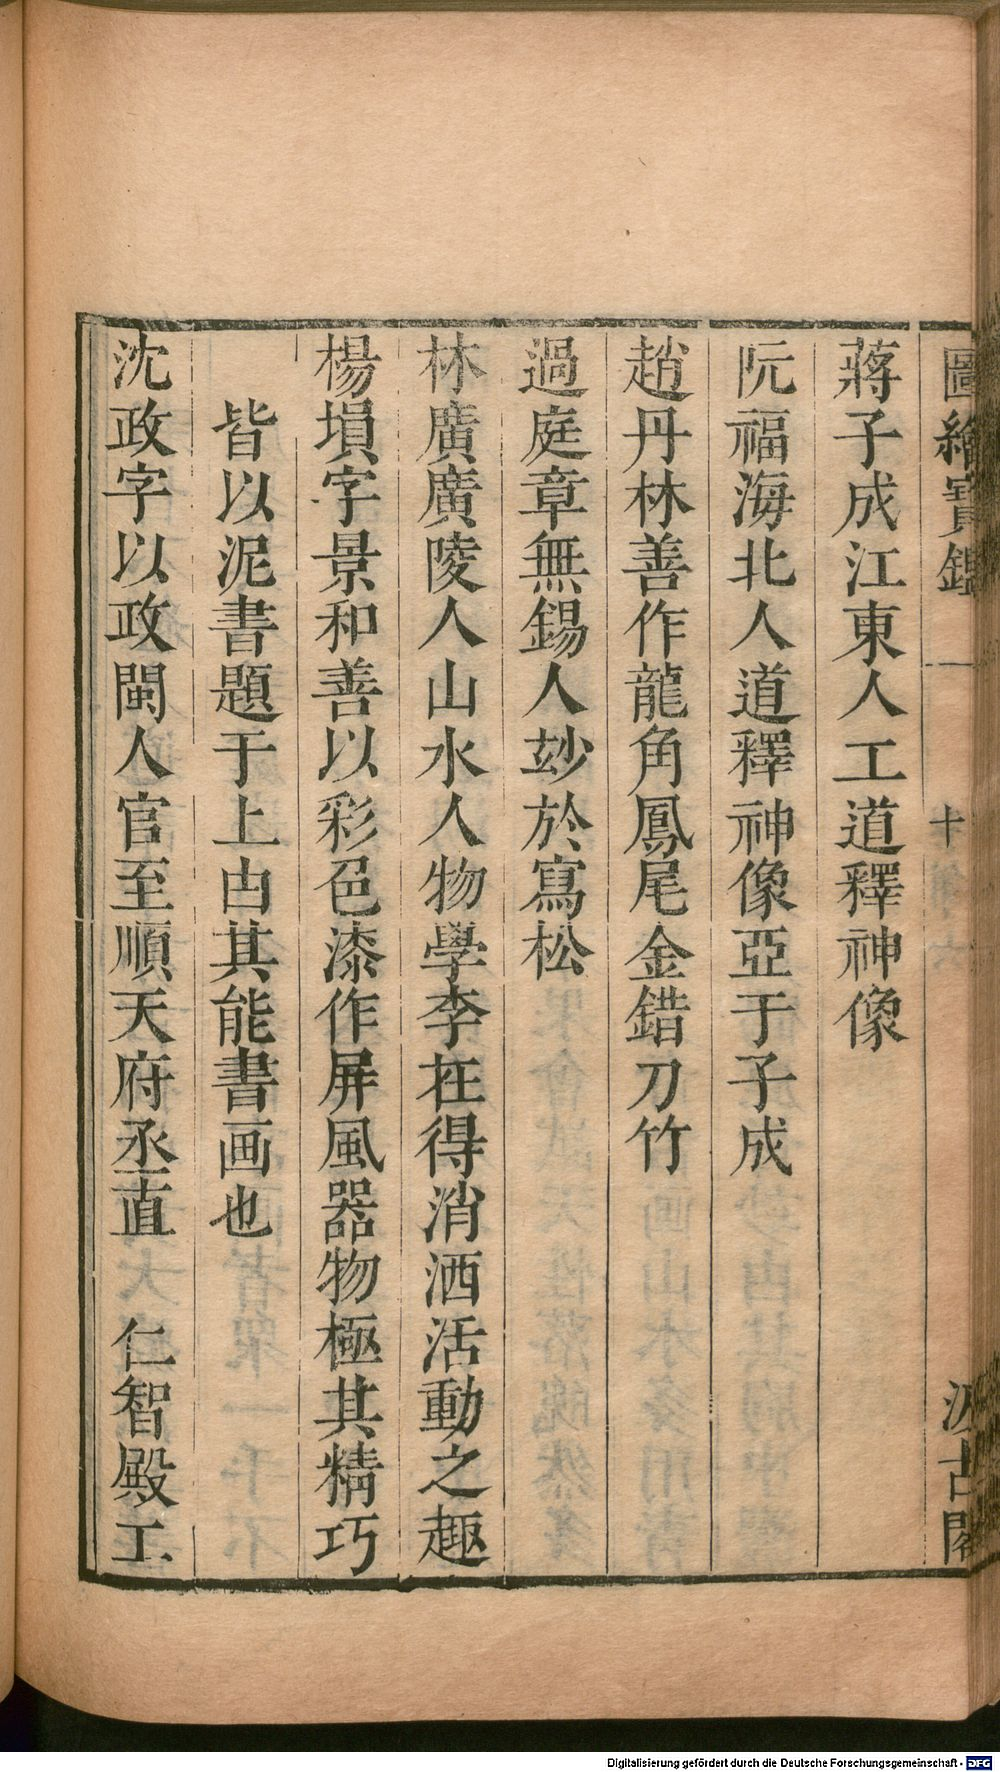 圖繪寶鑑
十
汲古閣
蔣子成江東人工道釋神像
阮福海北人道釋神像亞于子成
趙丹林善作龍角鳳尾金錯刀竹
過庭章無錫人玅於寫松
林廣廣陵人山水人物學李在得消洒活動之趣
楊塤字景和善以彩色漆作屏風器物極其精巧
皆以泥書題于上甴其能書画也
沈政字以政閩人官至順天府丞直　仁智殿工
Digitalisierung gefördert durch die Deutsche Forschungsgemeinschaft - DFG